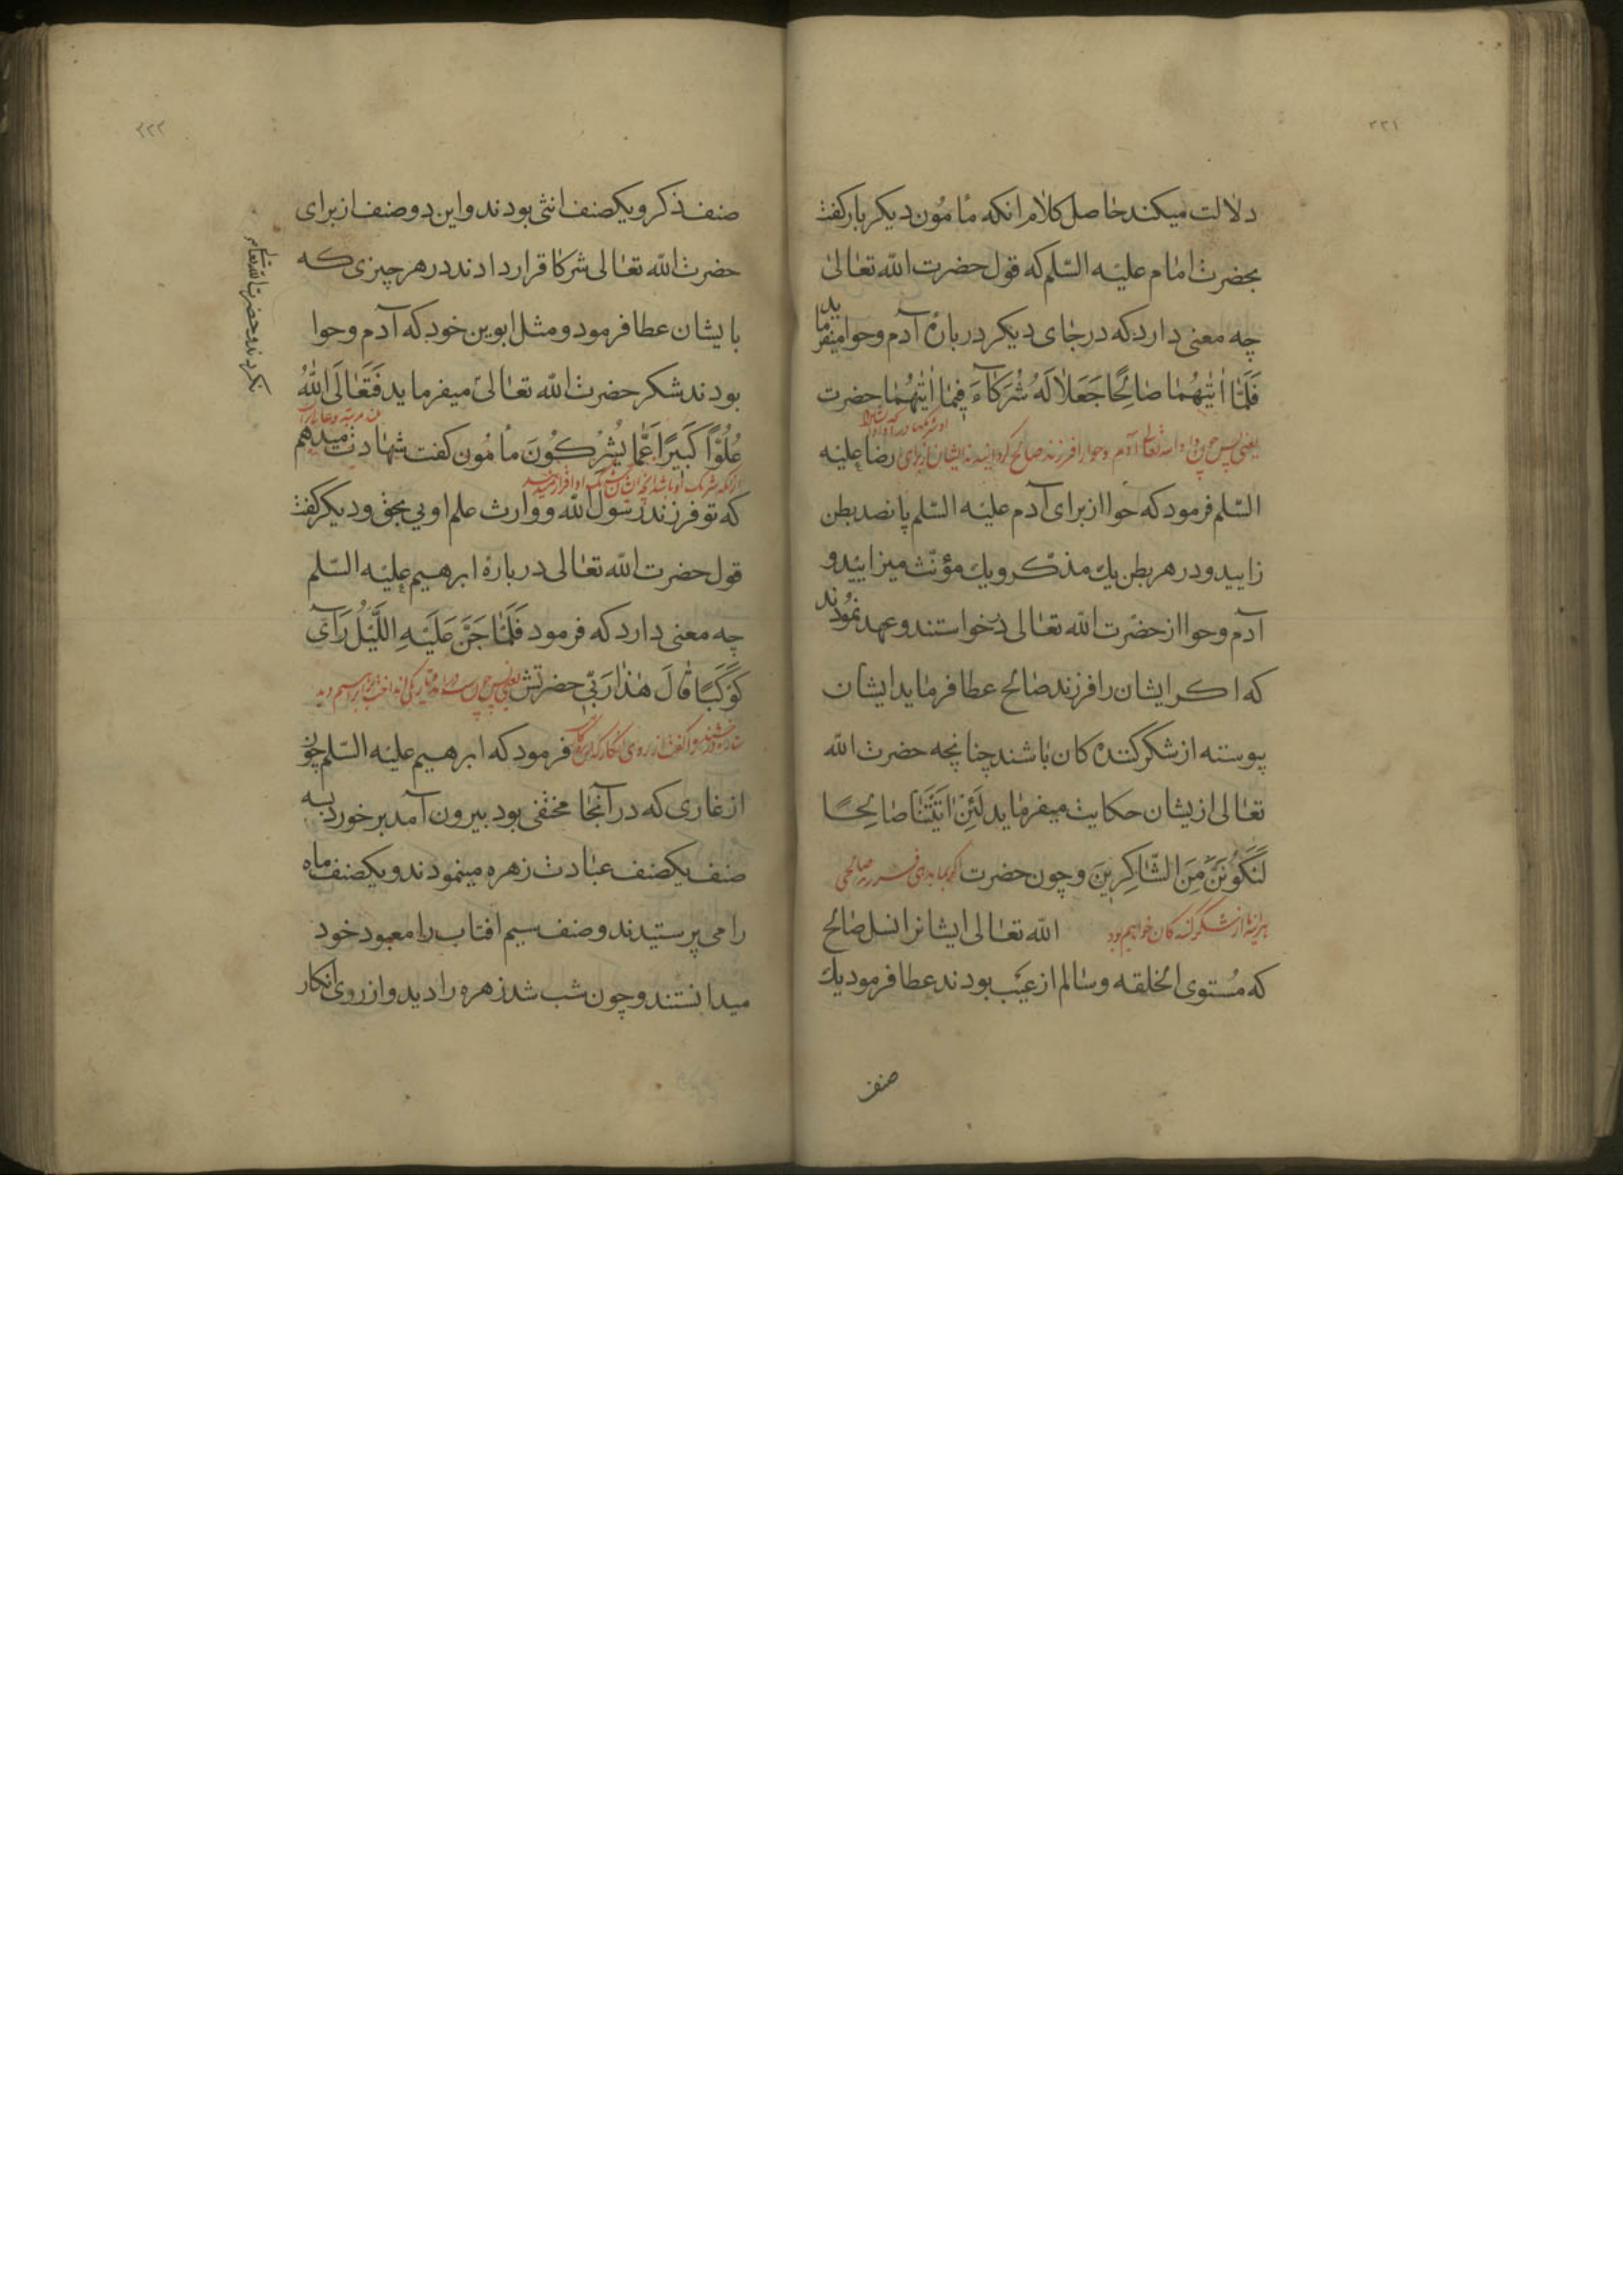 ۳۲۱
دلالت میکند حاصل کلام انکه مامون دیکر بار کفت
بحضرت امام علیه السّلم که قول حضرت الله تعالی
چه معنی دارد که در جای دیکر در بارهٔ آدم و حوا میفرماید
فَلَمَّا اٰتٰیهُمَا صَالِحًا جَعَلَا لَهُ شُرَکَآءَ فِیمَا اٰتٰیهُمَا حضرت
یعنی پس چون داد الله تعالی آدم و حوا را فرزند صالح کردانیدند ایشان از برای
رضا علیه
السّلم فرمود که حوا از برای آدم علیه السّلم پانصد بطن
زایید و در هر بطن یك مذکر و یك مؤنّث میزایید و
آدم و حوا از حضرت الله تعالی درخواستند و عهد نمودند
که اکر ایشان را فرزند صالح عطا فرماید ایشان
پیوسته از شکر کننده کان باشند چنانچه حضرت الله
تعالی ازیشان حکایت میفرماید لَئِنْ اٰتَیْتَنَا صَالِحًا
لَنَکُونَنَّ مِنَ الشَّاکِرِینَ و چون حضرت
هر آینه ما از شکر کننده کان خواهیم بود الله تعالی ایشانرا نسل صالح
که مُستوی الخلقه و سالم از عیب بودند عطا فرمود یك
صنف
۳۲۲
صنف ذکر و یکصنف انثی بودند و این دو صنف از برای
حضرت الله تعالی شرکا قرار دادند در هر چیزی که
بایشان عطا فرمود و مثل ابوین خود که آدم و حوا
بودند شکر حضرت الله تعالی میفرماید فَتَعَالَی اللهُ
نکردند و حضرت الله تعالی
عُلُوًّا کَبِیرًا عَمَّا یُشْرِکُونَ مامون کفت شهادت میدهم
که تو فرزند رسول الله و وارث علم اویی بحق و دیکر کفت
قول حضرت الله تعالی در بارهٔ ابرهیم علیه السّلم
چه معنی دارد که فرمود فَلَمَّا جَنَّ عَلَیْهِ اللَّیْلُ رَآی
کَوْکَبًا قَالَ هٰذَا رَبِّی حضرتش
فرمود که ابرهیم علیه السّلم چون
از غاری که در آنجا مخفی بود بیرون آمد برخورد بسه
صنف یکصنف عبادت زهره مینمودند و یکصنف ماه
را می پرستیدند و صنف سیم افتاب را معبود خود
میدانستند و چون شب شد زهره را دید و از روی انکار